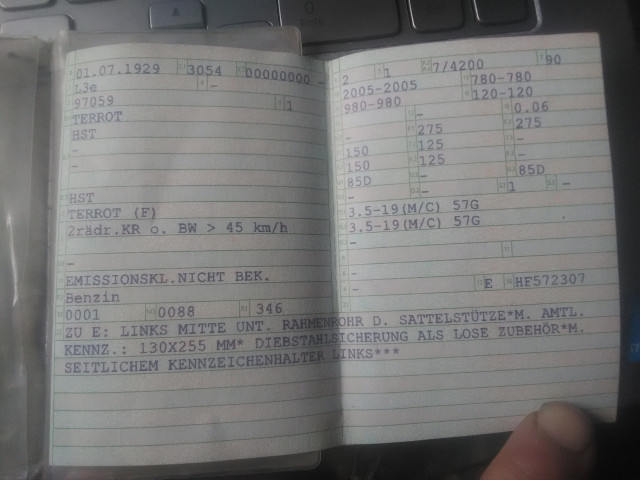 01.07.1929 3054 00000000 -
L3e -
97059 1
TERROT
HST
-
-
HST
TERROT (F)
2rädr.KR o. BW > 45 km/h
-
EMISSIONSKL.NICHT BEK.
Benzin
0001 0088 346
2 1 7/4200 90
2005-2005 780-780
980-980 120-120
- 0.06
- 275 275
150 125 -
150 125 -
85D - 85D
- - 1 -
3.5-19(M/C) 57G
3.5-19(M/C) 57G
-
-
- E HF572307
ZU E: LINKS MITTE UNT. RAHMENROHR D. SATTELSTÜTZE*M. AMTL.
KENNZ.: 130X255 MM* DIEBSTAHLSICHERUNG ALS LOSE ZUBEHÖR*M.
SEITLICHEM KENNZEICHENHALTER LINKS***